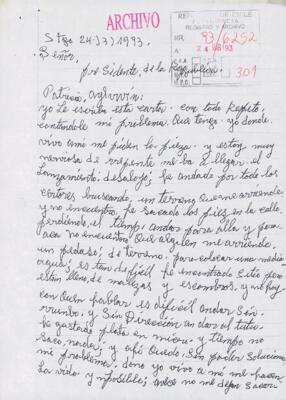 ARCHIVO
REPUBLICA DE CHILE
REGISTRO Y ARCHIVO
NR. 93/6252
A: 24 MAR 93
301
Stgo 24-3-1993.
Señor,
presidente, de la República.
Patricio, aylwin:
yo le escribo esta carta con todo respeto
contandole mi problema. Que tengo yo donde
vivo ami me piden la pieza y estoy muy
nerviosa de repente me ba a llegar el
lanzamiento; desalojo; he andado por todo los
sectores buscando, un terreno que me arriende
y no encuentro, he sacado los pies en la calle
perdiendo, el tiempo andar para alla y para
aca no encuentro que alguien me arriende,
un pedaso; de terreno, para colocar una media
agua; es tan dificil he encontrado sitio pero
estan lleno, de malezas y escombros, y no hay
con quien hablar es dificil andar sin
rrumbo, y sin Direccion en
he gastado plata en micro y tiempo no
saco, nada; y aqui quedo. Sin poder solucionar
mi problema; donde yo vivo a mi me hacen
la vida ymposible; no me dejan sacar